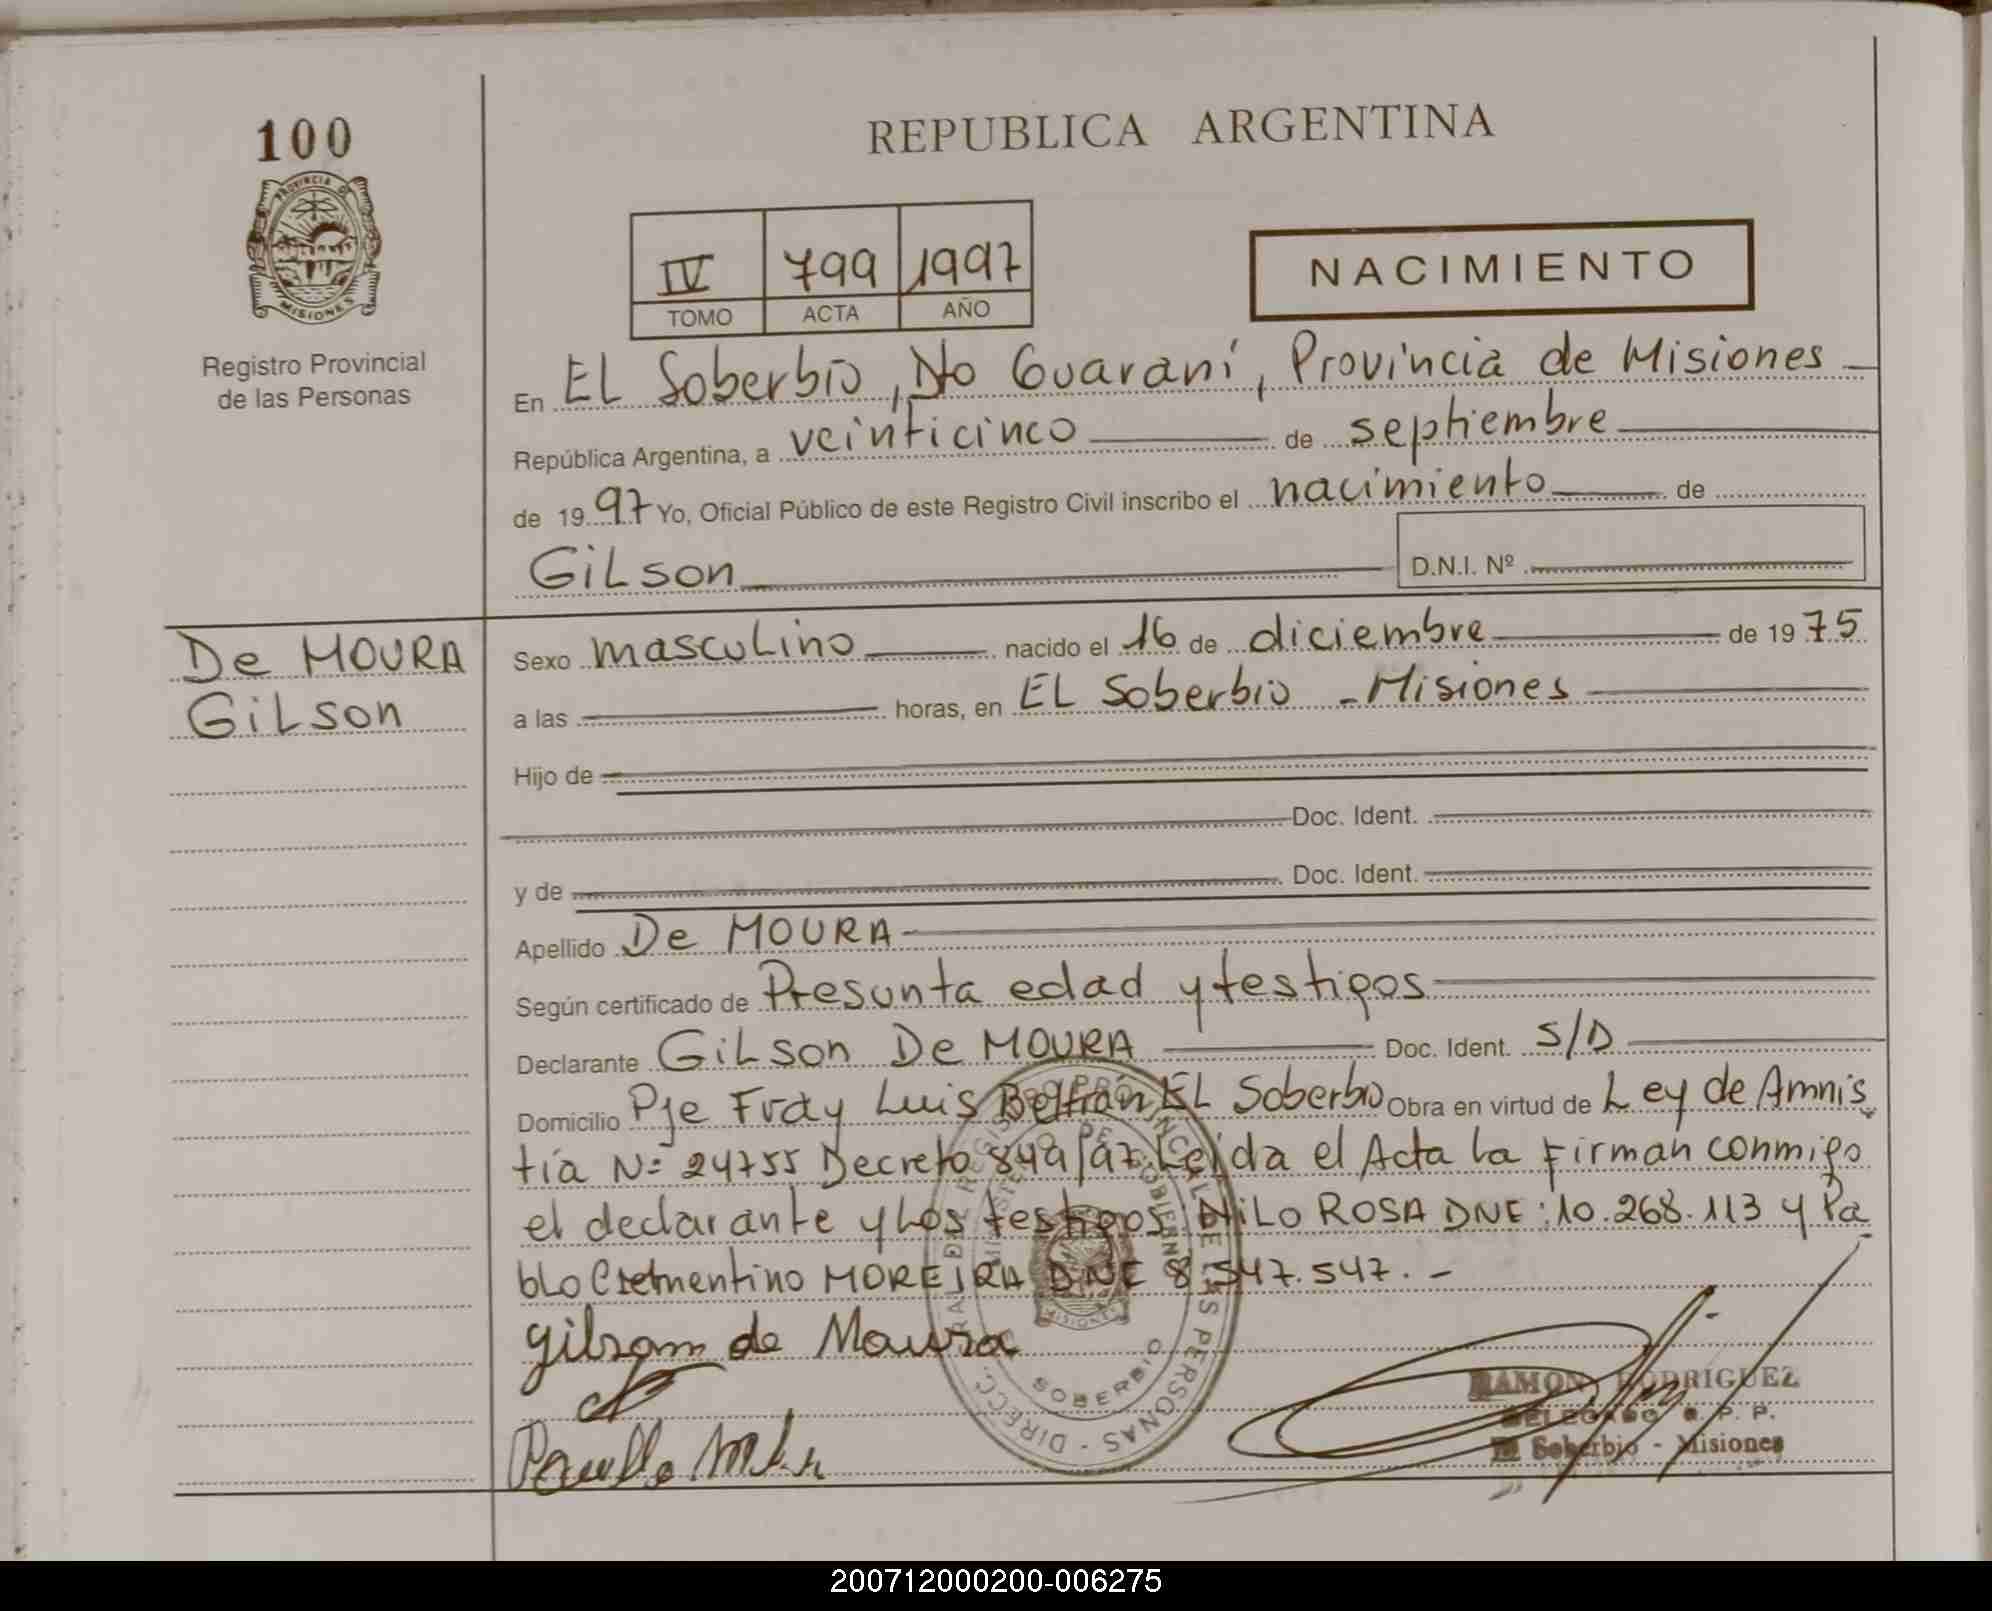 100
REPUBLICA ARGENTINA
PROVINCIA D
MISIONES
Registro Provincial
de las Personas
IV 799 1997
TOMO ACTA AÑO
NACIMIENTO
En EL Soberbio, Dto Guaraní, Provincia de Misiones
República Argentina, a veinticinco de septiembre
de 1997 Yo, Oficial Público de este Registro Civil inscribo el nacimiento de
GiLson
D.N.I. Nº
De MOURA
GiLson
Sexo mascuLino nacido el 16 de diciembre de 1975
a las horas, en EL Soberbio - Misiones
Hijo de
Doc. Ident.
y de Doc. Ident.
Apellido De MOURA
Según certificado de Presunta edad y testigos
Declarante GiLson De MOURA Doc. Ident. S/D
Domicilio Pje Fray Luis Beltrán EL Soberbio Obra en virtud de Ley de Amnis
tía Nº 24755 Decreto 849/97. Leída el Acta la Firman conmigo
el declarante y Los testigos: NiLO ROSA DNE: 10.268.113 y Pa
bLo Clementino MOREIRA DNE 8.547.547. -
gilson de Moura
RAMON RODRIGUEZ
DELEGADO R. P. P.
El Soberbio - Misiones
SOBERBIO
200712000200-006275